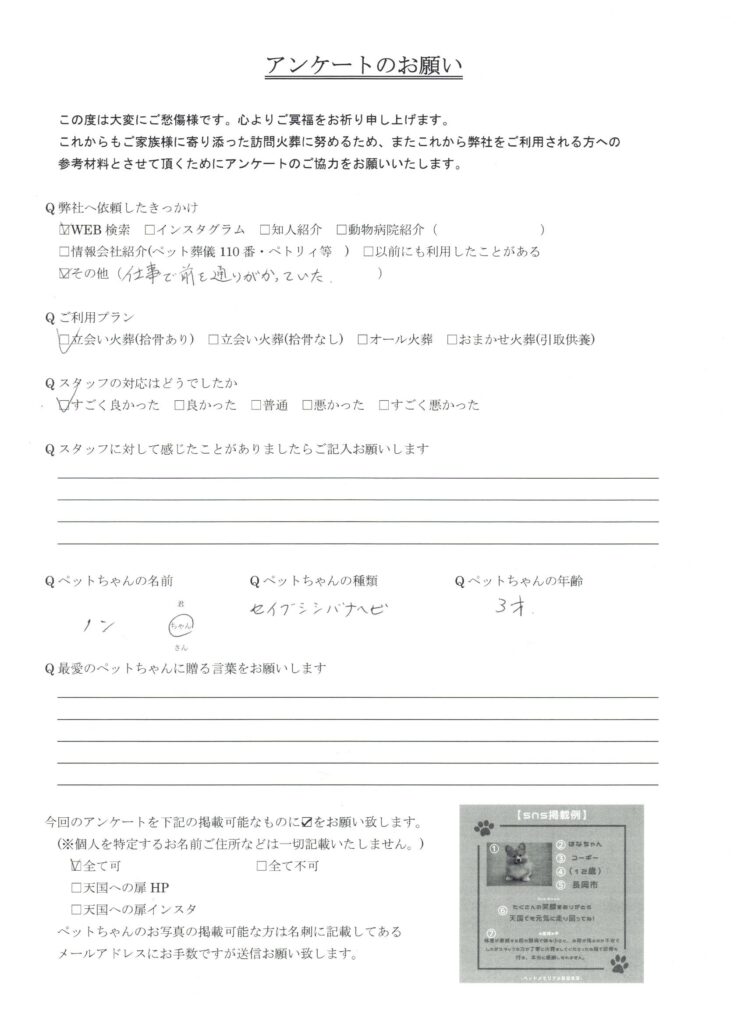 アンケートのお願い
この度は大変にご愁傷様です。心よりご冥福をお祈り申し上げます。
これからもご家族様に寄り添った訪問火葬に努めるため、またこれから弊社をご利用される方への
参考材料とさせて頂くためにアンケートのご協力をお願いいたします。
Q 弊社へ依頼したきっかけ
☑WEB 検索 □インスタグラム □知人紹介 □動物病院紹介（ ）
□情報会社紹介(ペット葬儀 110 番・ペトリィ等 ) □以前にも利用したことがある
☑その他（仕事で前を通りがかっていた. ）
Q ご利用プラン
☑立会い火葬(拾骨あり) □立会い火葬(拾骨なし) □オール火葬 □おまかせ火葬(引取供養)
Q スタッフの対応はどうでしたか
☑すごく良かった □良かった □普通 □悪かった □すごく悪かった
Q スタッフに対して感じたことがありましたらご記入お願いします
Q ペットちゃんの名前 Q ペットちゃんの種類 Q ペットちゃんの年齢
君
ノン ちゃん セイブシシバナヘビ 3才.
さん
Q 最愛のペットちゃんに贈る言葉をお願いします
今回のアンケートを下記の掲載可能なものに☑をお願い致します。
(※個人を特定するお名前ご住所などは一切記載いたしません。)
☑全て可 □全て不可
□天国への扉 HP
□天国への扉インスタ
ペットちゃんのお写真の掲載可能な方は名刺に記載してある
メールアドレスにお手数ですが送信お願い致します。
【sns掲載例】
① ② はなちゃん
③ コーギー
④ (12歳)
⑤ 長岡市
⑥ たくさんの笑顔をありがとう
天国でも元気に走り回ってね!
⑦